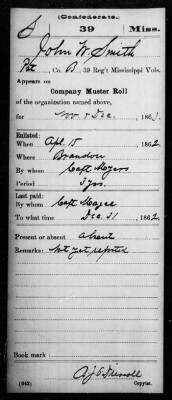 (Confederate.)
S 39 Miss.
John W. Smith
Pvt, Co. B, 39 Reg't Mississippi Vols.
Appears on
Company Muster Roll
of the organization named above,
for Nov. & Dec., 186
Enlisted:
When Apl. 15, 1862
Where Brandon
By whom Capt Myers
Period 3 yrs.
Last paid:
By whom Capt Magee
To what time Dec. 31, 1862
Present or absent absent
Remarks: Not yet reported
Book mark:
(642) Copyist.